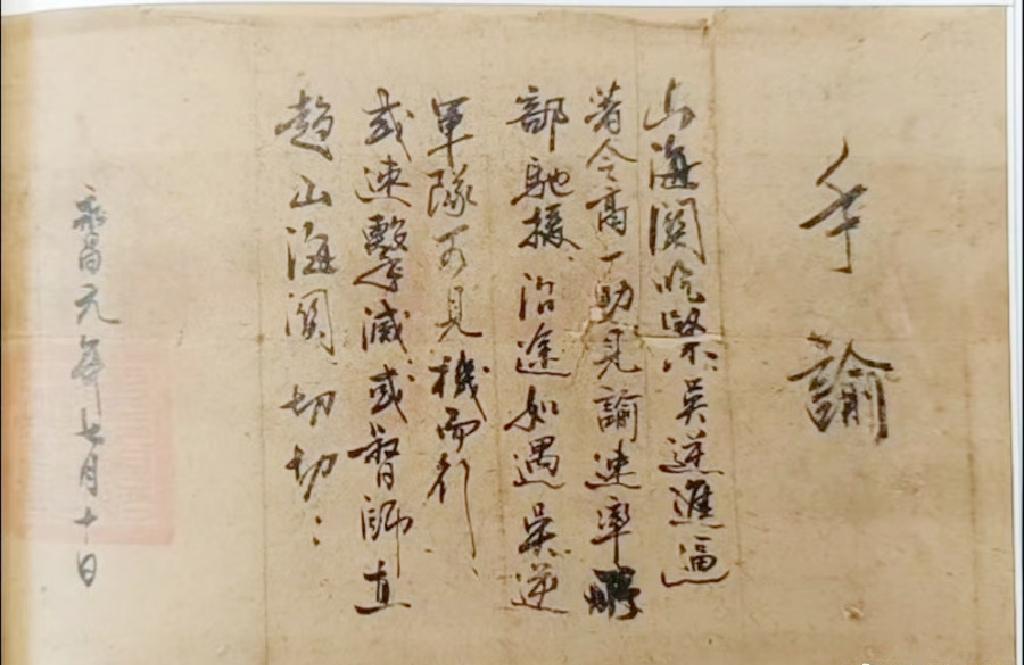 手諭
山海關吃緊吳逆進逼
著令高一功見諭速率
部馳援沿途如遇吳逆
軍隊可見機而行
或速擊滅或督師直
趨山海關切切：
永昌元年七月十日